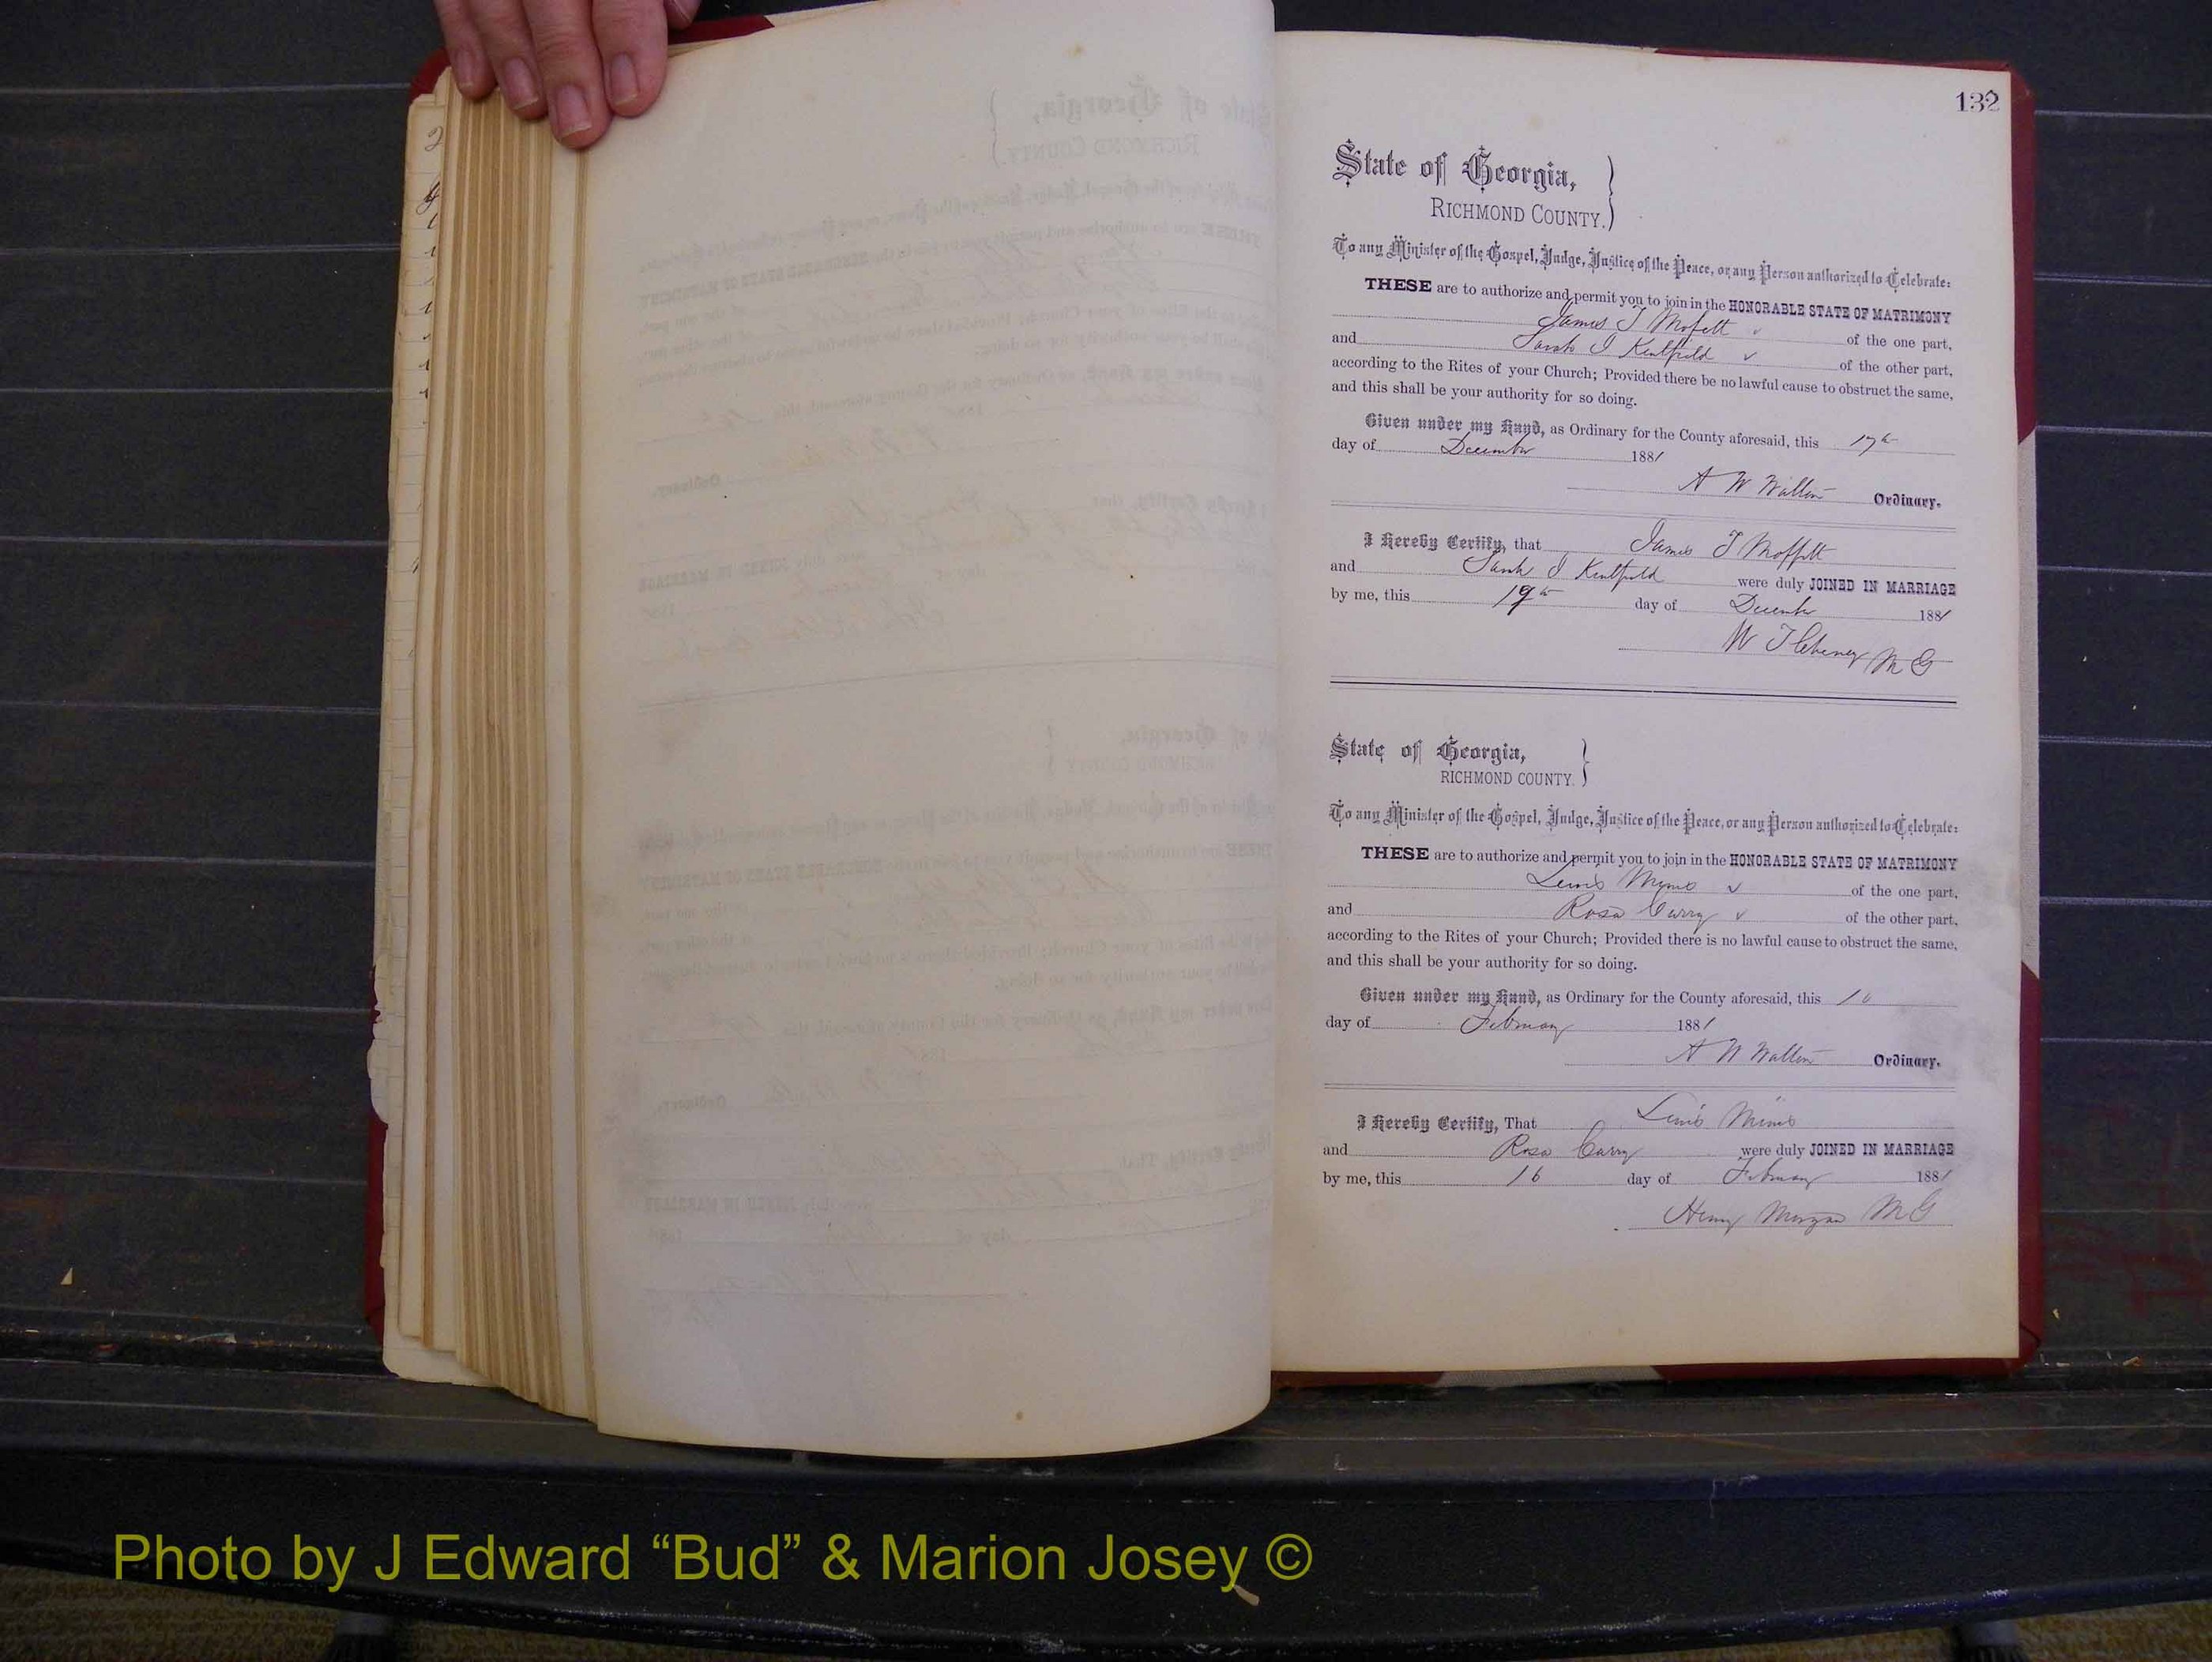 132
State of Georgia,
RICHMOND COUNTY.
To any Minister of the Gospel, Judge, Justice of the Peace, or any Person authorized to Celebrate:
THESE are to authorize and permit you to join in the HONORABLE STATE OF MATRIMONY
James T Mofett of the one part,
and Sarah J Kentfield of the other part,
according to the Rites of your Church; Provided there be no lawful cause to obstruct the same,
and this shall be your authority for so doing.
Given under my Hand, as Ordinary for the County aforesaid, this 17th
day of December 1881
A W Walton Ordinary.
I Hereby Certify, that James T Moffett
and Sarah J Kentfield were duly JOINED IN MARRIAGE
by me, this 19th day of December 1881
W T MG
State of Georgia,
RICHMOND COUNTY.
To any Minister of the Gospel, Judge, Justice of the Peace, or any Person authorized to Celebrate:
THESE are to authorize and permit you to join in the HONORABLE STATE OF MATRIMONY
Lewis Mims of the one part,
and Rosa Curry of the other part,
according to the Rites of your Church; Provided there is no lawful cause to obstruct the same,
and this shall be your authority for so doing.
Given under my Hand, as Ordinary for the County aforesaid, this
day of February 1881
A W Walton Ordinary.
I Hereby Certify, That Lewis Mims
and Rosa Curry were duly JOINED IN MARRIAGE
by me, this 16 day of February 1881
Henry Morgan MG
Photo by J Edward “Bud” & Marion Josey ©